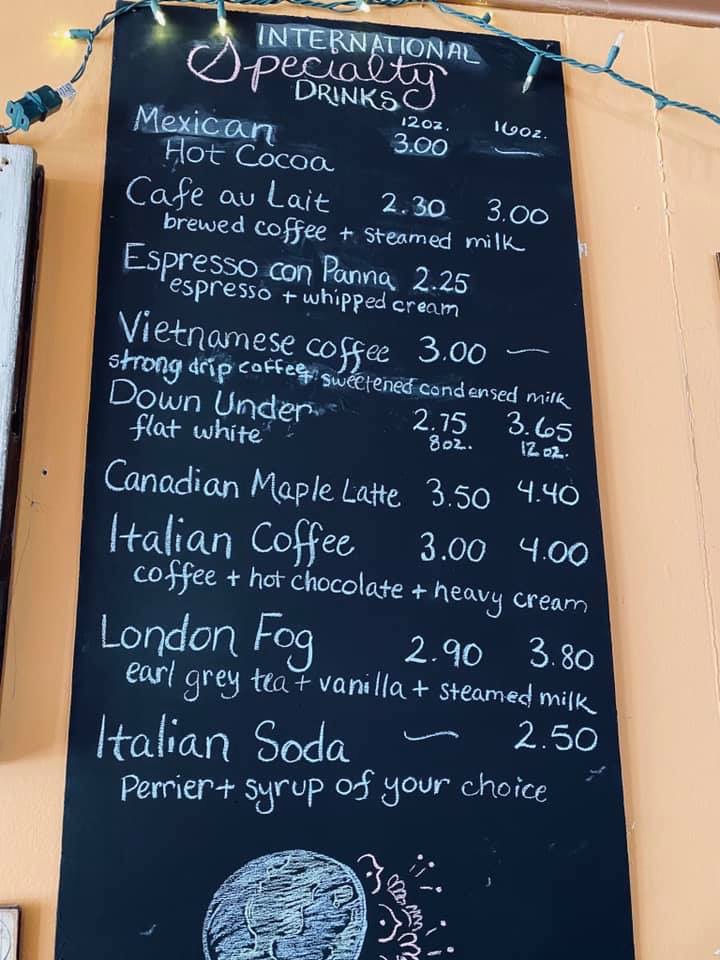 INTERNATIONAL
Specialty
DRINKS
12oz. 16oz.
Mexican 3.00 —
Hot Cocoa
Cafe au Lait 2.30 3.00
brewed coffee + steamed milk
Espresso con Panna 2.25
espresso + whipped cream
Vietnamese coffee 3.00 —
strong drip coffee + sweetened condensed milk
Down Under 2.75 3.65
flat white 8oz. 12oz.
Canadian Maple Latte 3.50 4.40
Italian Coffee 3.00 4.00
coffee + hot chocolate + heavy cream
London Fog 2.90 3.80
earl grey tea + vanilla + steamed milk
Italian Soda — 2.50
Perrier + syrup of your choice